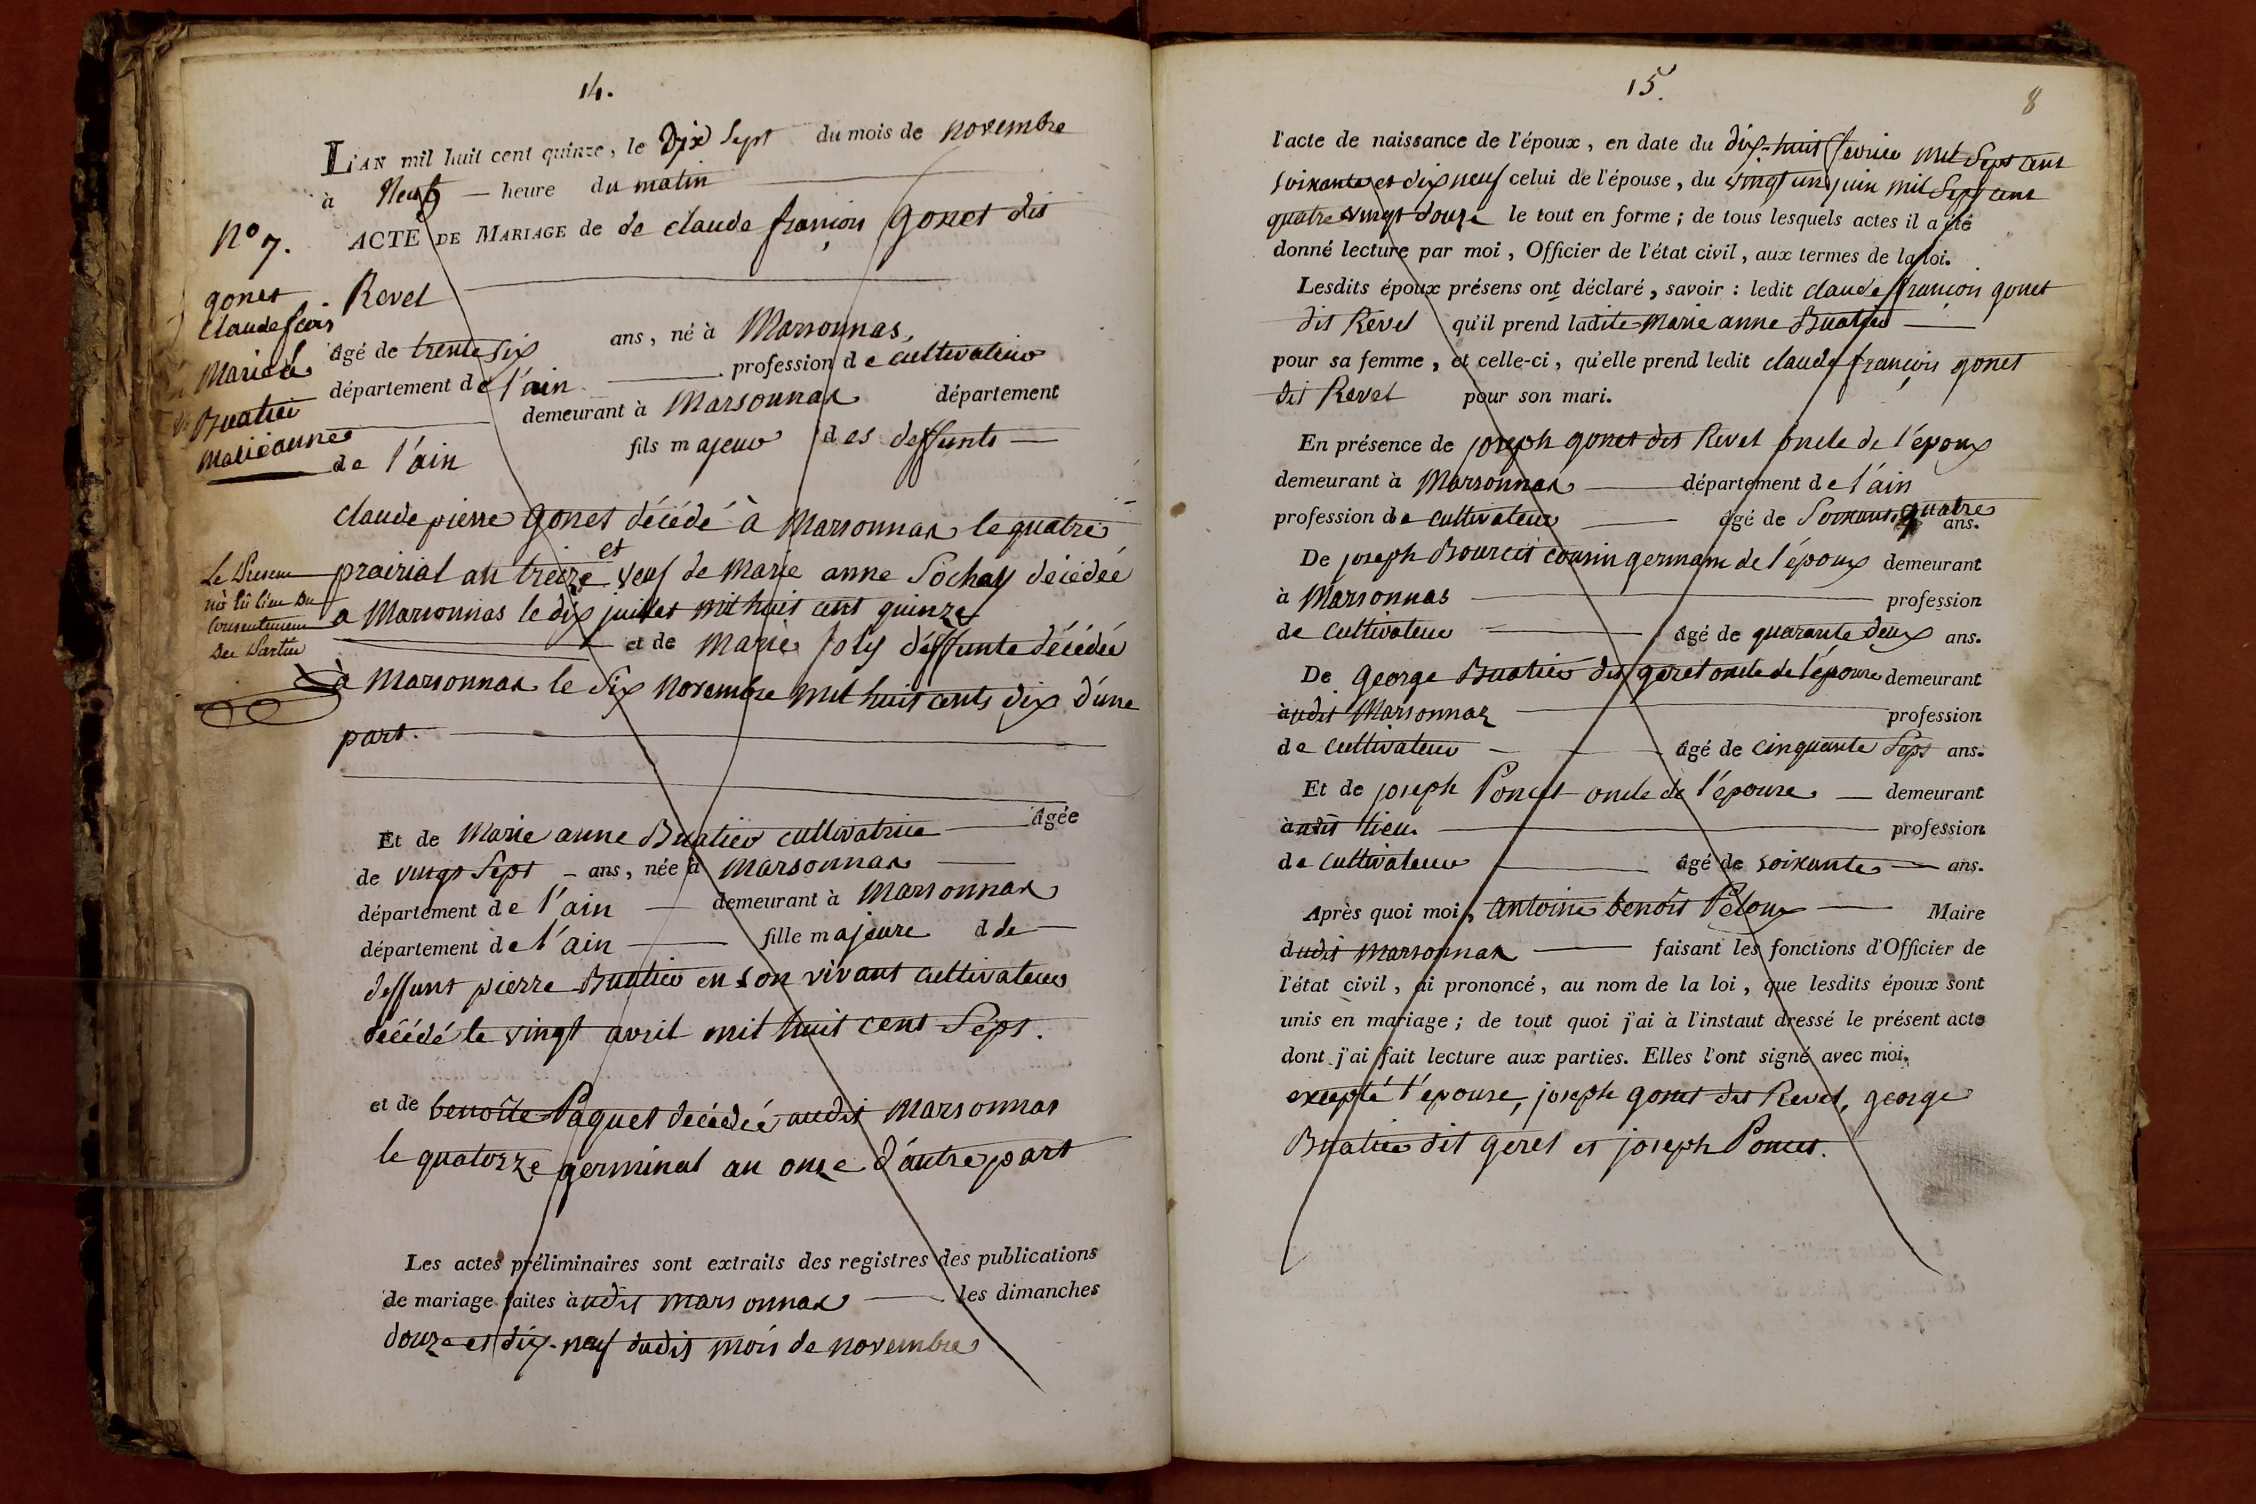 14.
L'AN mil huit cent quinze, le Dix Sept du mois de novembre
à Neuf — heure du matin
ACTE DE MARIAGE de de claude françois gonet dit
Revel
âgé de trente six ans, né à Marsonnas,
département de l'ain profession de cultivateur
demeurant à Marsonnas département
de l'ain fils majeur des deffunts
claude pierre gonet décédé à Marsonnas le quatre
prairial an treize et veuf de Marie anne Sochay décédée
a Marsonnas le dix juillet mil huit cent quinze
et de Marie Joly déffunte décédée
à Marsonnas le Six novembre mil huit cents dix d'une
part.
Et de Marie anne Buatier cultivatrice âgée
de vingt Sept ans, née à Marsonnas
département de l'ain demeurant à Marsonnas
département de l'ain fille majeure d de
deffunt pierre Buatier en son vivant cultivateur
décédé le vingt avril mil huit cent Sept.
et de benoîte Paquet décédée audit Marsonnas
le quatorze germinal an onze d'autre part
Les actes préliminaires sont extraits des registres des publications
de mariage faites à udit Marsonnas les dimanches
douze et dix-neuf dudit mois de novembre
No 7.
gonet
Claude fcois
Marié à
Buatier
Marie anne
Le Present
n'a eû lieu du
Consentement
Des Parties
15.
8
l'acte de naissance de l'époux, en date du dix-huit fevrier mil Sept cent
soixante et dix neuf celui de l'épouse, du vingt un juin mil Sept cent
quatre vingt douze le tout en forme; de tous lesquels actes il a été
donné lecture par moi, Officier de l'état civil, aux termes de la loi.
Lesdits époux présens ont déclaré, savoir: ledit claude françois gonet
dit Revel qu'il prend ladite Marie anne Buatier
pour sa femme, et celle-ci, qu'elle prend ledit claude françois gonet
dit Revel pour son mari.
En présence de joseph gonet dit Revel oncle de l'époux
demeurant à Marsonnas département de l'ain
profession de cultivateur âgé de Soixante quatre ans.
De joseph Bourcet cousin germain de l'époux demeurant
à Marsonnas profession
de cultivateur âgé de quarante deux ans.
De George Buatier dit geret oncle de l'épouse demeurant
àudit Marsonnas profession
de cultivateur âgé de cinquante Sept ans.
Et de joseph Poncet oncle de l'épouse demeurant
àudit lieu profession
de cultivateur âgé de soixante ans.
Après quoi moi, antoine benoît Péloux Maire
dudit Marsonnas faisant les fonctions d'Officier de
l'état civil, ai prononcé, au nom de la loi, que lesdits époux sont
unis en mariage; de tout quoi j'ai à l'instaut dressé le présent acte
dont j'ai fait lecture aux parties. Elles l'ont signé avec moi,
excepté l'épouse, joseph gonet dit Revel, george
Buatier dit geret et joseph Poncet.